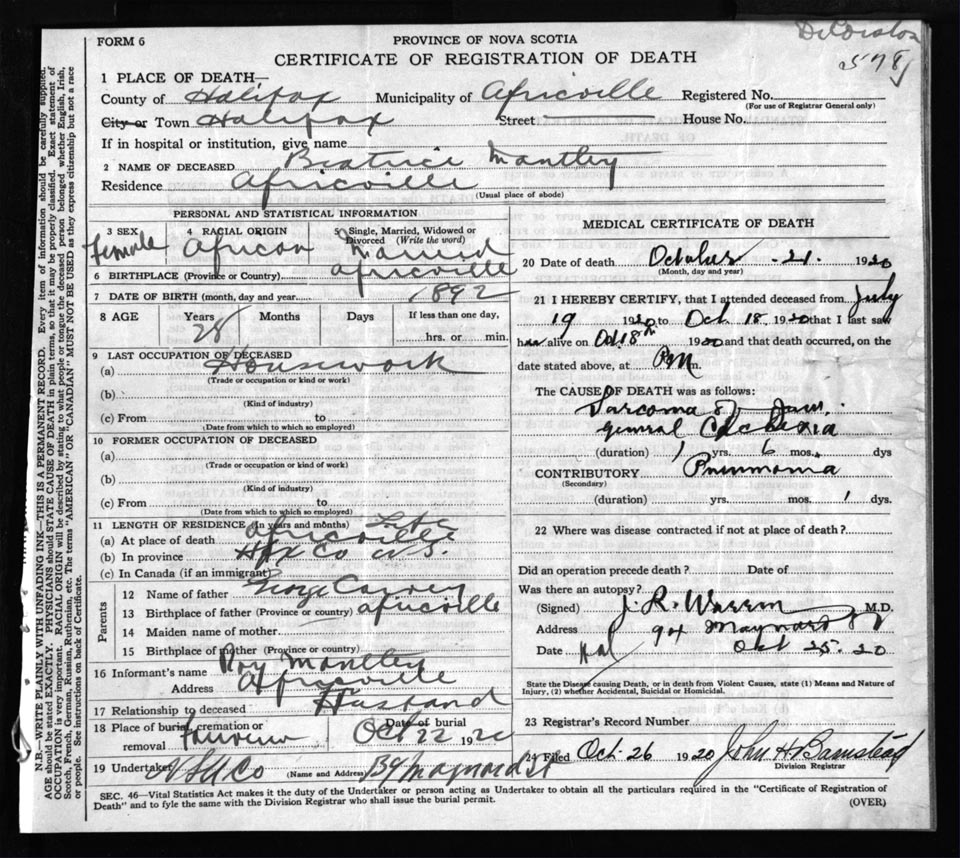 578
FORM 6
PROVINCE OF NOVA SCOTIA
CERTIFICATE OF REGISTRATION OF DEATH
1 PLACE OF DEATH—
County of Halifax Municipality of Africville Registered No.
(For use of Registrar General only)
City or Town Halifax Street House No.
If in hospital or institution, give name
2 NAME OF DECEASED Beatrice Mantley
Residence Africville
(Usual place of abode)
PERSONAL AND STATISTICAL INFORMATION
3 SEX Female
4 RACIAL ORIGIN African
5 Single, Married, Widowed or Divorced (Write the word) Married
6 BIRTHPLACE (Province or Country) Africville
7 DATE OF BIRTH (month, day and year) 1892
8 AGE Years 28 Months Days If less than one day, hrs. or min.
9 LAST OCCUPATION OF DECEASED
(a) Housework
(Trade or occupation or kind or work)
(b)
(Kind of industry)
(c) From to
(Date from which to which so employed)
10 FORMER OCCUPATION OF DECEASED
(a)
(Trade or occupation or kind or work)
(b)
(Kind of industry)
(c) From to
(Date from which to which so employed)
11 LENGTH OF RESIDENCE (In years and months) Life
(a) At place of death Africville
(b) In province Hfx Co N.S.
(c) In Canada (if an immigrant)
Parents
12 Name of father George Carvey
13 Birthplace of father (Province or country) Africville
14 Maiden name of mother
15 Birthplace of mother (Province or country)
16 Informant's name Roy Mantley
Address Africville
17 Relationship to deceased Husband
18 Place of burial, cremation or removal Fairview Date of burial Oct 22 1920
19 Undertaker (Name and Address) Maynard St
MEDICAL CERTIFICATE OF DEATH
20 Date of death October 21. 1920
(Month, day and year)
21 I HEREBY CERTIFY, that I attended deceased from July
19 1920 to Oct 18. 1920 that I last saw
her alive on Oct 18th 1920 and that death occurred, on the
date stated above, at P.M m.
The CAUSE OF DEATH was as follows:
Sarcoma of Jaw.
general Cachexia
(duration) 1 yrs. 6 mos. dys
CONTRIBUTORY Pneumonia
(Secondary)
(duration) yrs. mos. 1 dys.
22 Where was disease contracted if not at place of death?
Did an operation precede death? Date of
Was there an autopsy?
(Signed) J. R. Warren M.D.
Address Maynard
Date Hal Oct 25. 20
State the Disease causing Death, or in death from Violent Causes, state (1) Means and Nature of
Injury, (2) whether Accidental, Suicidal or Homicidal.
23 Registrar's Record Number
24 Filed Oct. 26 1920 John H Barnstead
Division Registrar
SEC. 46—Vital Statistics Act makes it the duty of the Undertaker or person acting as Undertaker to obtain all the particulars required in the "Certificate of Registration of
Death" and to fyle the same with the Division Registrar who shall issue the burial permit.
(OVER)
N.B.—WRITE PLAINLY WITH UNFADING INK—THIS IS A PERMANENT RECORD. Every item of information should be carefully supplied.
AGE should be stated EXACTLY. PHYSICIANS should STATE CAUSE OF DEATH in plain terms, so that it may be properly classified. Exact statement of
OCCUPATION is very important. RACIAL ORIGIN will be described by stating to what people or tongue the deceased person belonged whether English, Irish,
Scotch, French, German, Russian, Ruthenian, etc. The terms "AMERICAN" OR "CANADIAN" MUST NOT BE USED as they express citizenship but not a race
or people. See instructions on back of Certificate.